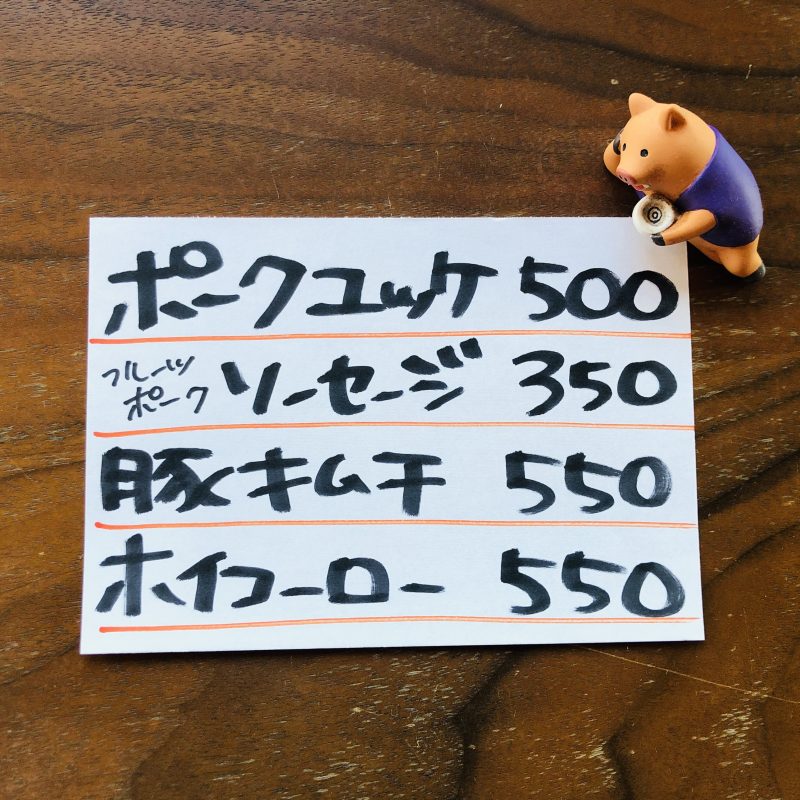 ポークユッケ 500
フルーツポーク ソーセージ 350
豚キムチ 550
ホイコーロー 550